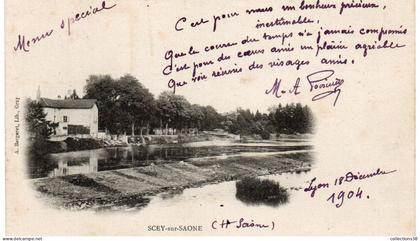 Menu spécial
C'est pour nous un bonheur précieux,
inestimable,
Que le cours du temps n'a jamais compromis
C'est pour des cœurs amis un plaisir agréable
Que voir réunis des visages amis.
M. A.
A. Bergeret, Lib., Gray
Lyon 18 décembre
1904.
SCEY-sur-SAONE
(Hte Saône)